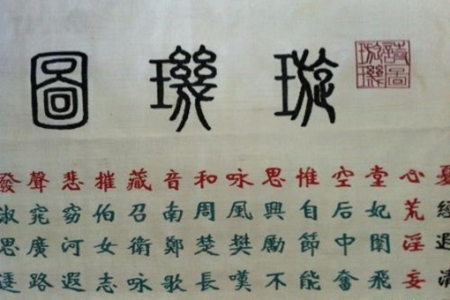 璇璣圖
憂心堂空惟思咏和音藏摧悲聲發
經荒妃后自興風周南召伯窈窕淑
遐淫闈中節厲樊楚鄭衛女河廣思
清妄飛奮能不嘆長歌咏志遐路逶